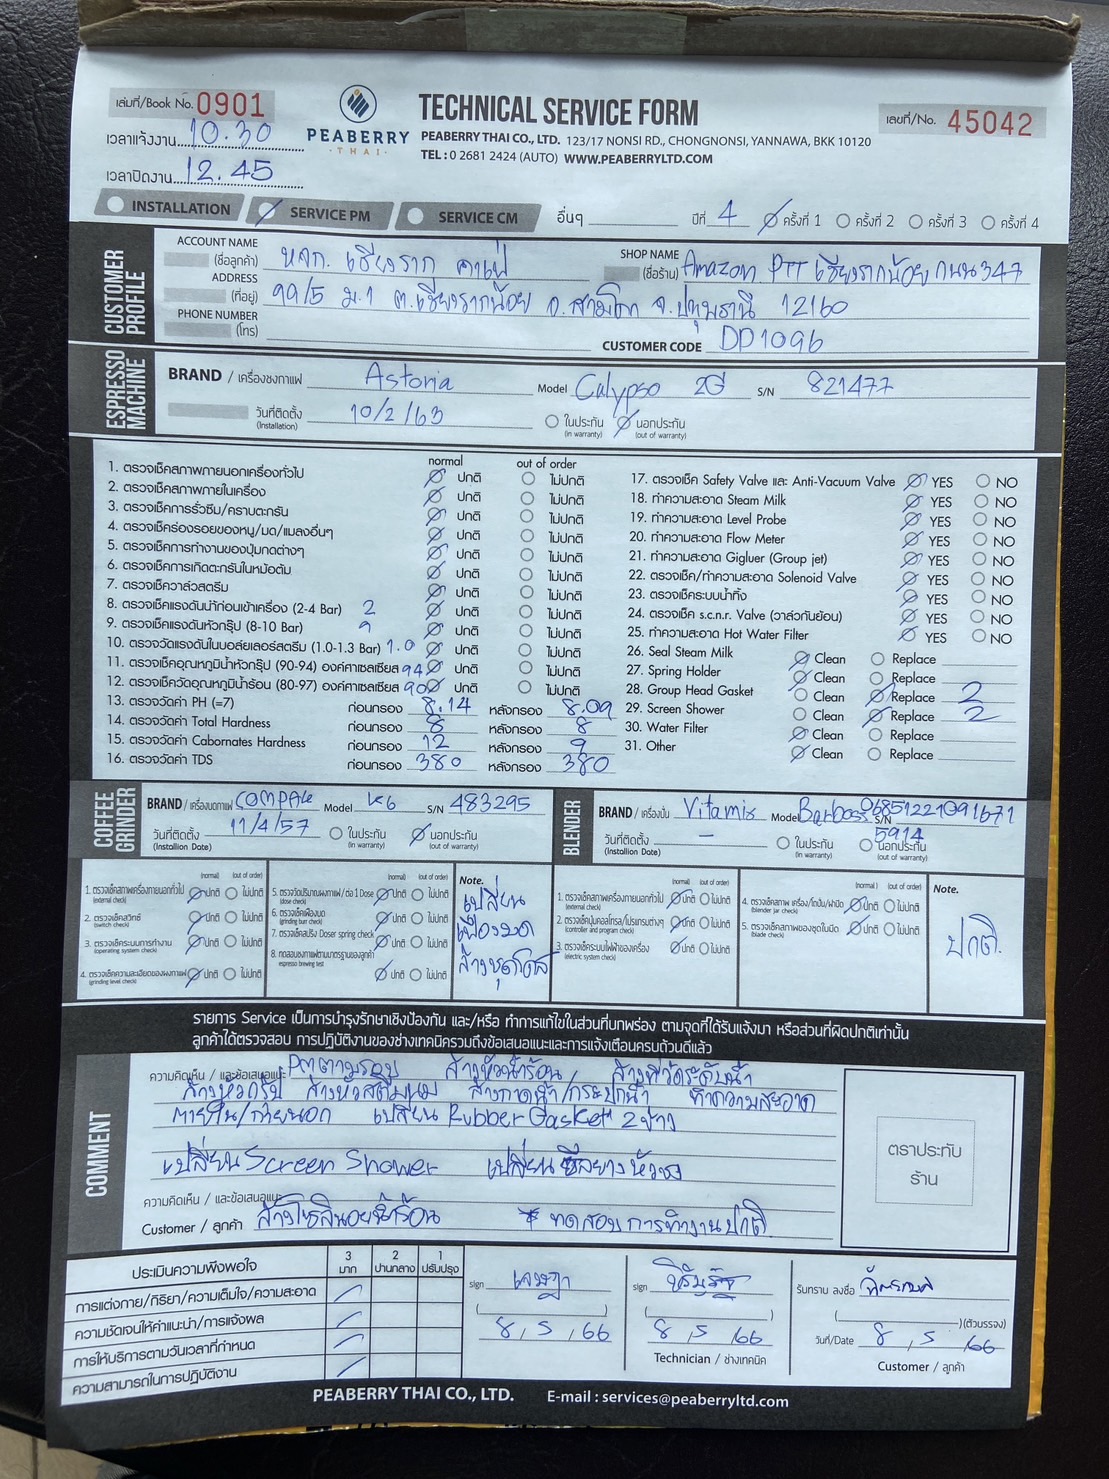 เล่มที่/Book No. 0901
เวลาแจ้งงาน 10.30
เวลาปิดงาน 12.45
PEABERRY
THAI
TECHNICAL SERVICE FORM
PEABERRY THAI CO., LTD. 123/17 NONSI RD., CHONGNONSI, YANNAWA, BKK 10120
TEL : 0 2681 2424 (AUTO) WWW.PEABERRYLTD.COM
เลขที่/No. 45042
INSTALLATION SERVICE PM SERVICE CM อื่นๆ ปีที่ 4 ครั้งที่ 1 ครั้งที่ 2 ครั้งที่ 3 ครั้งที่ 4
CUSTOMER PROFILE
ACCOUNT NAME (ชื่อลูกค้า) หจก. เชียงราก คาเฟ่ SHOP NAME (ชื่อร้าน) Amazon PTT เชียงรากน้อย ถนน 347
ADDRESS (ที่อยู่) 99/5 ม.1 ต.เชียงรากน้อย อ.สามโคก จ.ปทุมธานี 12160
PHONE NUMBER (โทร) CUSTOMER CODE DD1096
ESPRESSO MACHINE
BRAND / เครื่องชงกาแฟ Astoria Model Calypso 2G S/N 821477
วันที่ติดตั้ง (Installation) 10/2/63 ในประกัน (in warranty) นอกประกัน (out of warranty)
normal out of order
1. ตรวจเช็คสภาพภายนอกเครื่องทั่วไป ปกติ ไม่ปกติ
2. ตรวจเช็คสภาพภายในเครื่อง ปกติ ไม่ปกติ
3. ตรวจเช็คการรั่วซึม/คราบตะกรัน ปกติ ไม่ปกติ
4. ตรวจเช็คร่องรอยของหนู/มด/แมลงอื่นๆ ปกติ ไม่ปกติ
5. ตรวจเช็คการทำงานของปุ่มกดต่างๆ ปกติ ไม่ปกติ
6. ตรวจเช็คการเกิดตะกรันในหม้อต้ม ปกติ ไม่ปกติ
7. ตรวจเช็ควาล์วสตรีม ปกติ ไม่ปกติ
8. ตรวจเช็คแรงดันน้ำก่อนเข้าเครื่อง (2-4 Bar) 2 ปกติ ไม่ปกติ
9. ตรวจเช็คแรงดันหัวกรุ๊ป (8-10 Bar) 9 ปกติ ไม่ปกติ
10. ตรวจวัดแรงดันในบอล์ยเลอร์สตรีม (1.0-1.3 Bar) 1.0 ปกติ ไม่ปกติ
11. ตรวจเช็คอุณหภูมิน้ำหัวกรุ๊ป (90-94) องศาเซลเซียส 94 ปกติ ไม่ปกติ
12. ตรวจเช็ควัดอุณหภูมิน้ำร้อน (80-97) องศาเซลเซียส 90 ปกติ ไม่ปกติ
13. ตรวจวัดค่า PH (=7) ก่อนกรอง 8.14 หลังกรอง 8.09
14. ตรวจวัดค่า Total Hardness ก่อนกรอง 8 หลังกรอง 8
15. ตรวจวัดค่า Cabornates Hardness ก่อนกรอง 12 หลังกรอง 9
16. ตรวจวัดค่า TDS ก่อนกรอง 380 หลังกรอง 380
17. ตรวจเช็ค Safety Valve และ Anti-Vacuum Valve YES NO
18. ทำความสะอาด Steam Milk YES NO
19. ทำความสะอาด Level Probe YES NO
20. ทำความสะอาด Flow Meter YES NO
21. ทำความสะอาด Gigluer (Group jet) YES NO
22. ตรวจเช็ค/ทำความสะอาด Solenoid Valve YES NO
23. ตรวจเช็คระบบน้ำทิ้ง YES NO
24. ตรวจเช็ค s.c.n.r. Valve (วาล์วกันย้อน) YES NO
25. ทำความสะอาด Hot Water Filter YES NO
26. Seal Steam Milk Clean Replace
27. Spring Holder Clean Replace
28. Group Head Gasket Clean Replace 2
29. Screen Shower Clean Replace 2
30. Water Filter Clean Replace
31. Other Clean Replace
COFFEE GRINDER
BRAND / เครื่องบดกาแฟ COMPAK Model K6 S/N 483295
วันที่ติดตั้ง (Installion Date) 11/4/57 ในประกัน (in warranty) นอกประกัน (out of warranty)
BLENDER
BRAND / เครื่องปั่น Vitamix Model Barboss S/N 06851221091671
5914
วันที่ติดตั้ง (Installion Date) - ในประกัน (in warranty) นอกประกัน (out of warranty)
(normal) (out of order)
1. ตรวจเช็คสภาพเครื่องภายนอกทั่วไป (external check) ปกติ ไม่ปกติ
2. ตรวจเช็คสวิทช์ (switch check) ปกติ ไม่ปกติ
3. ตรวจเช็คระบบการทำงาน (operating system check) ปกติ ไม่ปกติ
4. ตรวจเช็คความละเอียดของผงกาแฟ (grinding level check) ปกติ ไม่ปกติ
(normal) (out of order)
5. ตรวจวัดปริมาณผงกาแฟ/ต่อ 1 Dose (dose check) ปกติ ไม่ปกติ
6. ตรวจเช็คเฟืองบด (grinding burr check) ปกติ ไม่ปกติ
7. ตรวจเช็คสปริง Doser spring check ปกติ ไม่ปกติ
8. ทดสอบชงกาแฟตามมาตรฐานของลูกค้า espresso brewing test ปกติ ไม่ปกติ
Note.
เปลี่ยน
เฟืองบด
(normal) (out of order)
1. ตรวจเช็คสภาพเครื่องภายนอกทั่วไป (external check) ปกติ ไม่ปกติ
2. ตรวจเช็คปุ่มคอลโทรล/โปรแกรมต่างๆ (controller and program check) ปกติ ไม่ปกติ
3. ตรวจเช็คระบบไฟฟ้าของเครื่อง (electric system check) ปกติ ไม่ปกติ
(normal) (out of order)
4. ตรวจเช็คสภาพ เครื่อง/โถปั่น/ฝาปิด (blender jar check) ปกติ ไม่ปกติ
5. ตรวจเช็คสภาพของชุดใบมีด (blade check) ปกติ ไม่ปกติ
Note.
ปกติ.
รายการ Service เป็นการบำรุงรักษาเชิงป้องกัน และ/หรือ ทำการแก้ไขในส่วนที่บกพร่อง ตามจุดที่ได้รับแจ้งมา หรือส่วนที่ผิดปกติเท่านั้น
ลูกค้าได้ตรวจสอบ การปฏิบัติงานของช่างเทคนิครวมถึงข้อเสนอแนะและการแจ้งเตือนครบถ้วนดีแล้ว
COMMENT
ความคิดเห็น / และข้อเสนอแนะ PM ตามรอบ ล้างหัวน้ำร้อน ล้างที่วัดระดับน้ำ
ล้างหัวกรุ๊ป ล้างหัวสตีมนม ล้างถาดน้ำ/กระปุกน้ำ ทำความสะอาด
ภายใน/ภายนอก เปลี่ยน Rubber Gasket 2 ข้าง
เปลี่ยน Screen Shower เปลี่ยนซีลยางหัวชง
ความคิดเห็น / และข้อเสนอแนะ
Customer / ลูกค้า ล้างโซลินอยน้ำร้อน * ทดสอบการทำงานปกติ
ตราประทับ
ร้าน
ประเมินความพึงพอใจ 3 มาก 2 ปานกลาง 1 ปรับปรุง
การแต่งกาย/กิริยา/ความเต็มใจ/ความสะอาด
ความชัดเจนให้คำแนะนำ/การแจ้งผล
การให้บริการตามวันเวลาที่กำหนด
ความสามารถในการปฏิบัติงาน
sign
8, 5, 66
sign
8, 5, 66
Technician / ช่างเทคนิค
รับทราบ ลงชื่อ
(ตัวบรรจง)
วันที่/Date 8, 5, 66
Customer / ลูกค้า
PEABERRY THAI CO., LTD. E-mail : services@peaberryltd.com